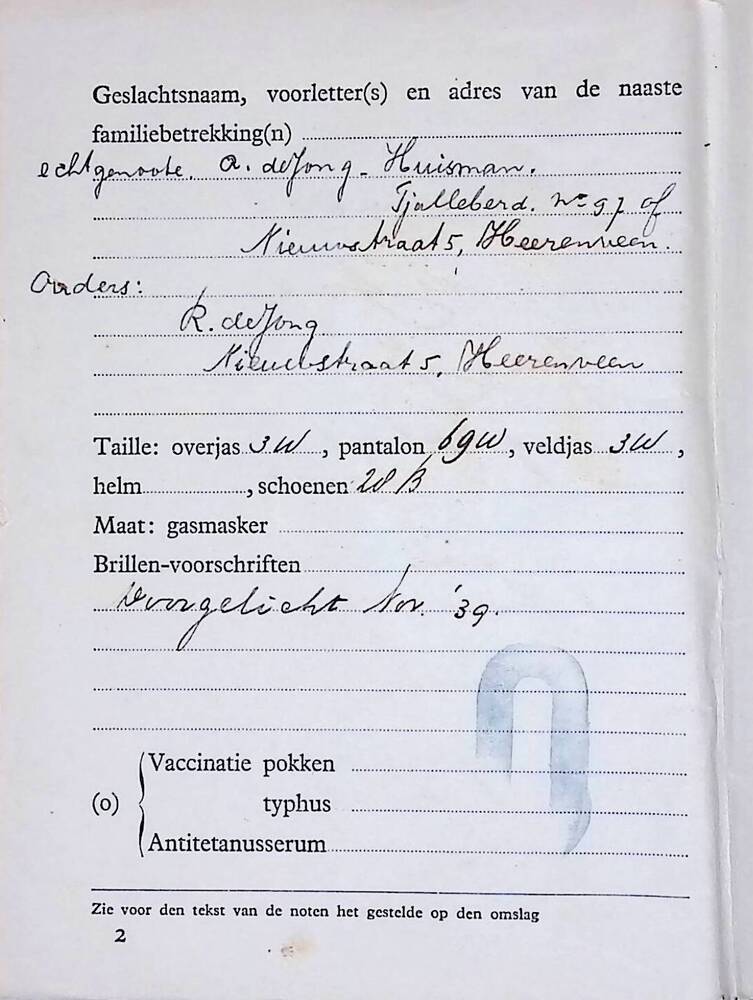 Geslachtsnaam, voorletter(s) en adres van de naaste
familiebetrekking(n)
echtgenoote. A. de Jong - Huisman.
Tjalleberd. no 97 of
Nieuwstraat 5, Heerenveen.
Ouders:
R. de Jong
Nieuwstraat 5, Heerenveen
Taille: overjas 3W, pantalon 69W, veldjas 3W,
helm, schoenen 28 B
Maat: gasmasker
Brillen-voorschriften
Voorgelicht Nov. '39.
(o) Vaccinatie pokken
typhus
Antitetanusserum
Zie voor den tekst van de noten het gestelde op den omslag
2